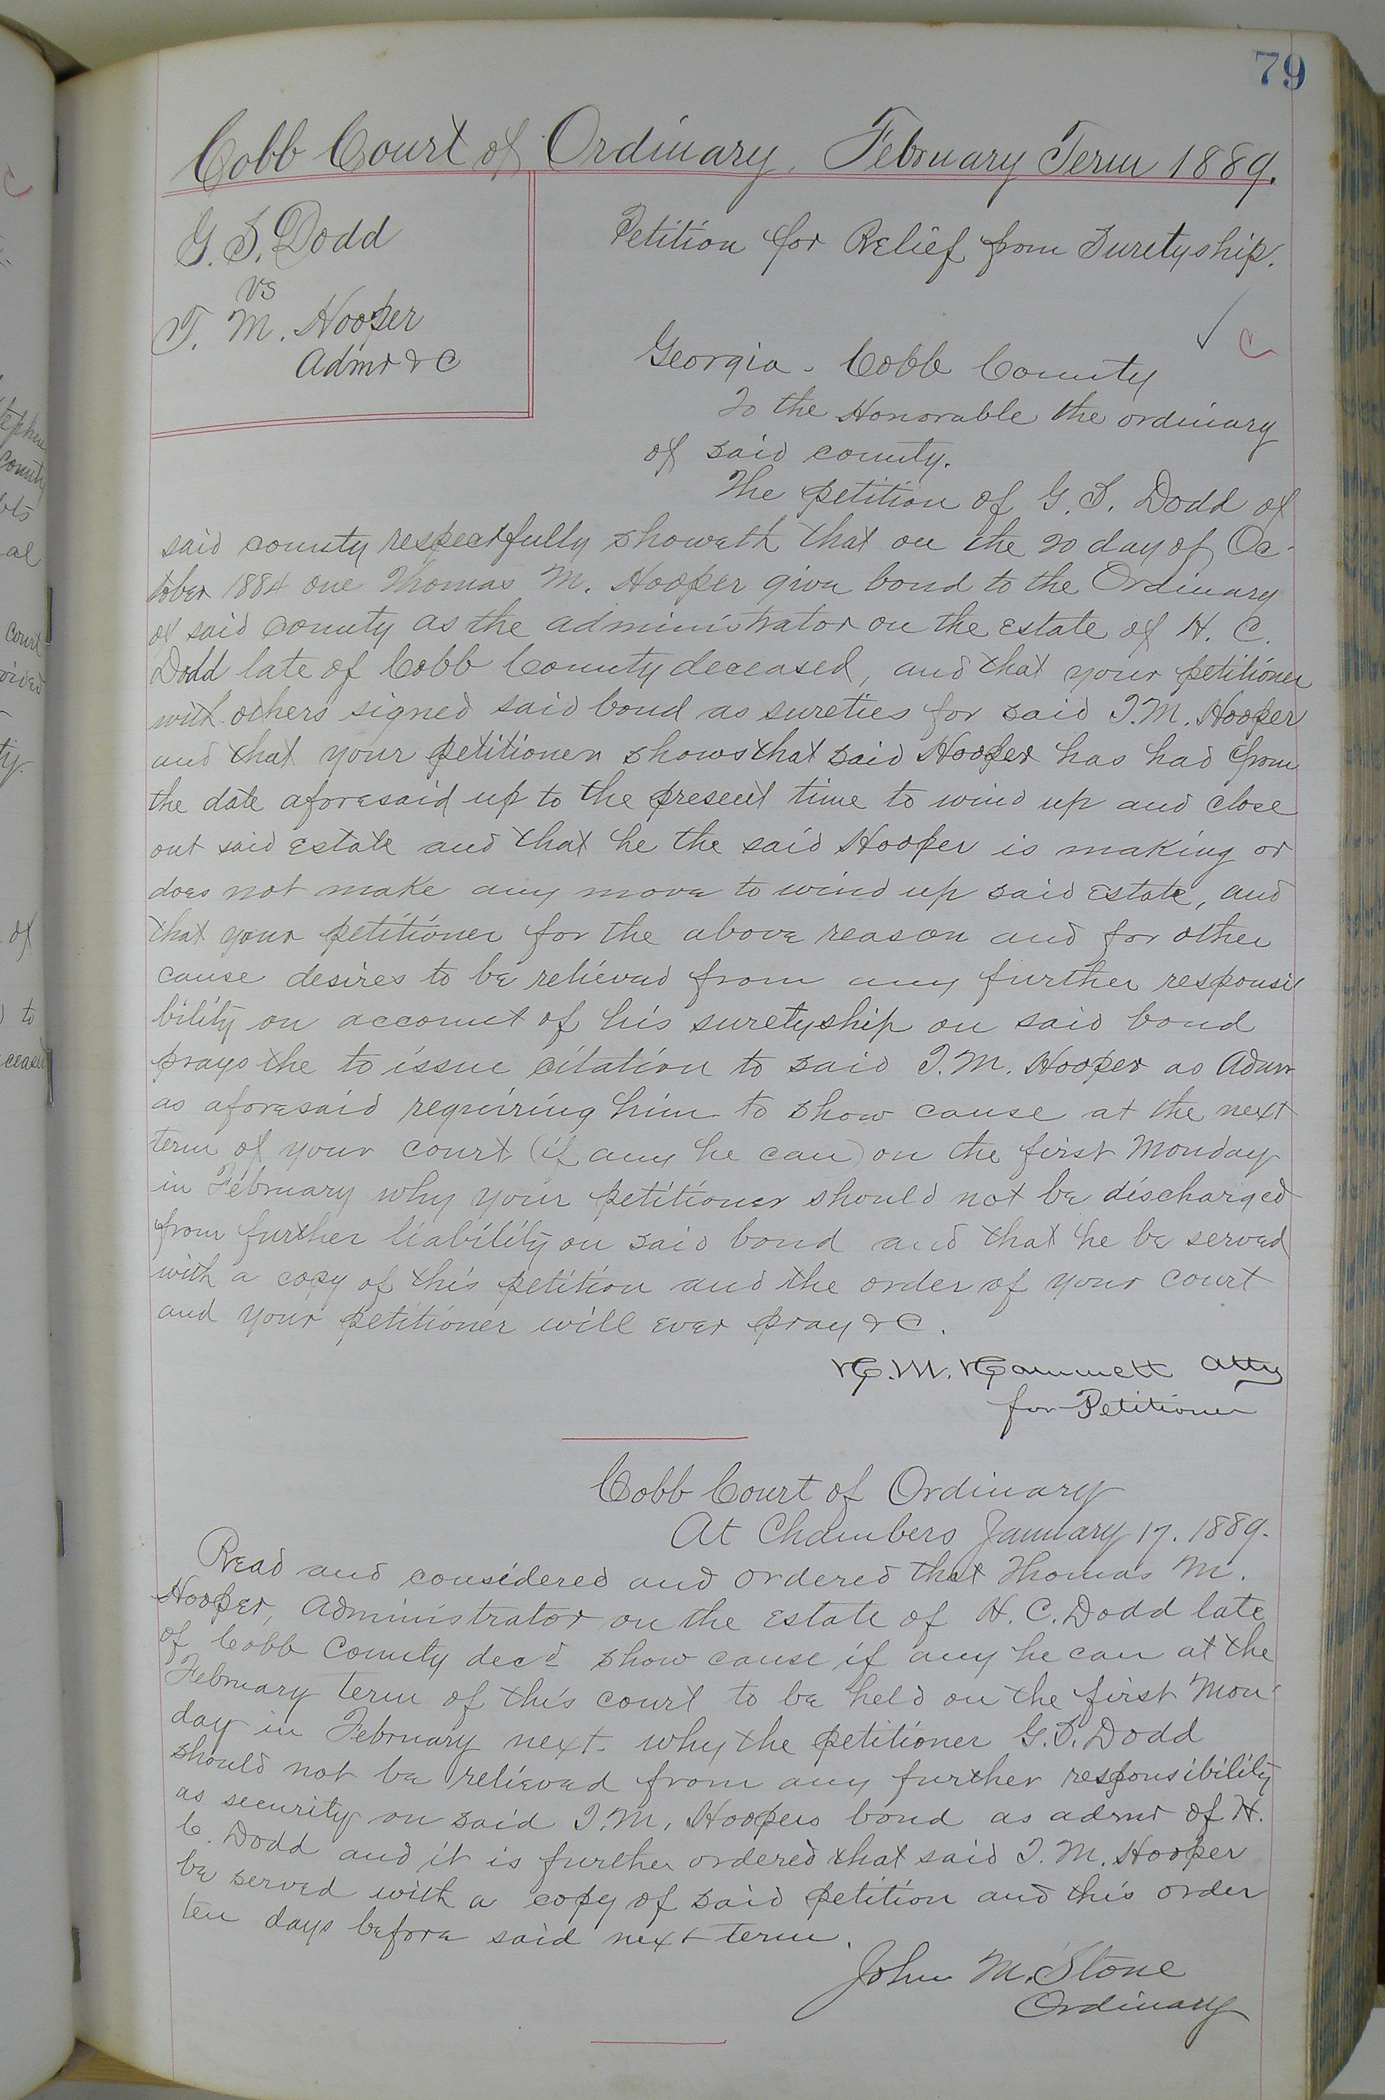 79
Cobb Court of Ordinary, February Term 1889.
G. S. Dodd
vs
T. M. Hooper
Admr & C
Petition for Relief from Suretyship.
Georgia. Cobb County
To the Honorable the ordinary
of said county.
The petition of G. S. Dodd of
said county respectfully showeth that on the 20 day of Oc-
tober 1884 one Thomas M. Hooper give bond to the Ordinary
of said county as the administrator on the Estate of H. C.
Dodd late of Cobb County deceased, and that your petitioner
with others signed said bond as sureties for said T. M. Hooper
and that your petitioner shows that said Hooper has had from
the date aforesaid up to the present time to wind up and close
out said Estate and that he the said Hooper is making or
does not make any move to wind up said Estate, and
that your petitioner for the above reason and for other
cause desires to be relieved from any further responsi
bility on account of his suretyship on said bond
prays the to issue citation to said T. M. Hooper as Admr
as aforesaid requiring him to show cause at the next
term of your court (if any he can) on the first Monday
in February why your petitioner should not be discharged
from further liability on said bond and that he be served
with a copy of this petition and the order of your court
and your petitioner will ever pray & C.
Atty
for Petitioner
Cobb Court of Ordinary
At Chambers January 17. 1889.
Read and considered and ordered that Thomas M.
Hooper, Administrator on the Estate of H. C. Dodd late
of Cobb County decd show cause if any he can at the
February term of this court to be held on the first Mon-
day in February next. why the petitioner G. S. Dodd
should not be relieved from any further responsibility
as security on said T. M. Hoopers bond as admr of H.
C. Dodd and it is further ordered that said T. M. Hooper
be served with a copy of said petition and this order
ten days before said next term.
John M. Stone
Ordinary